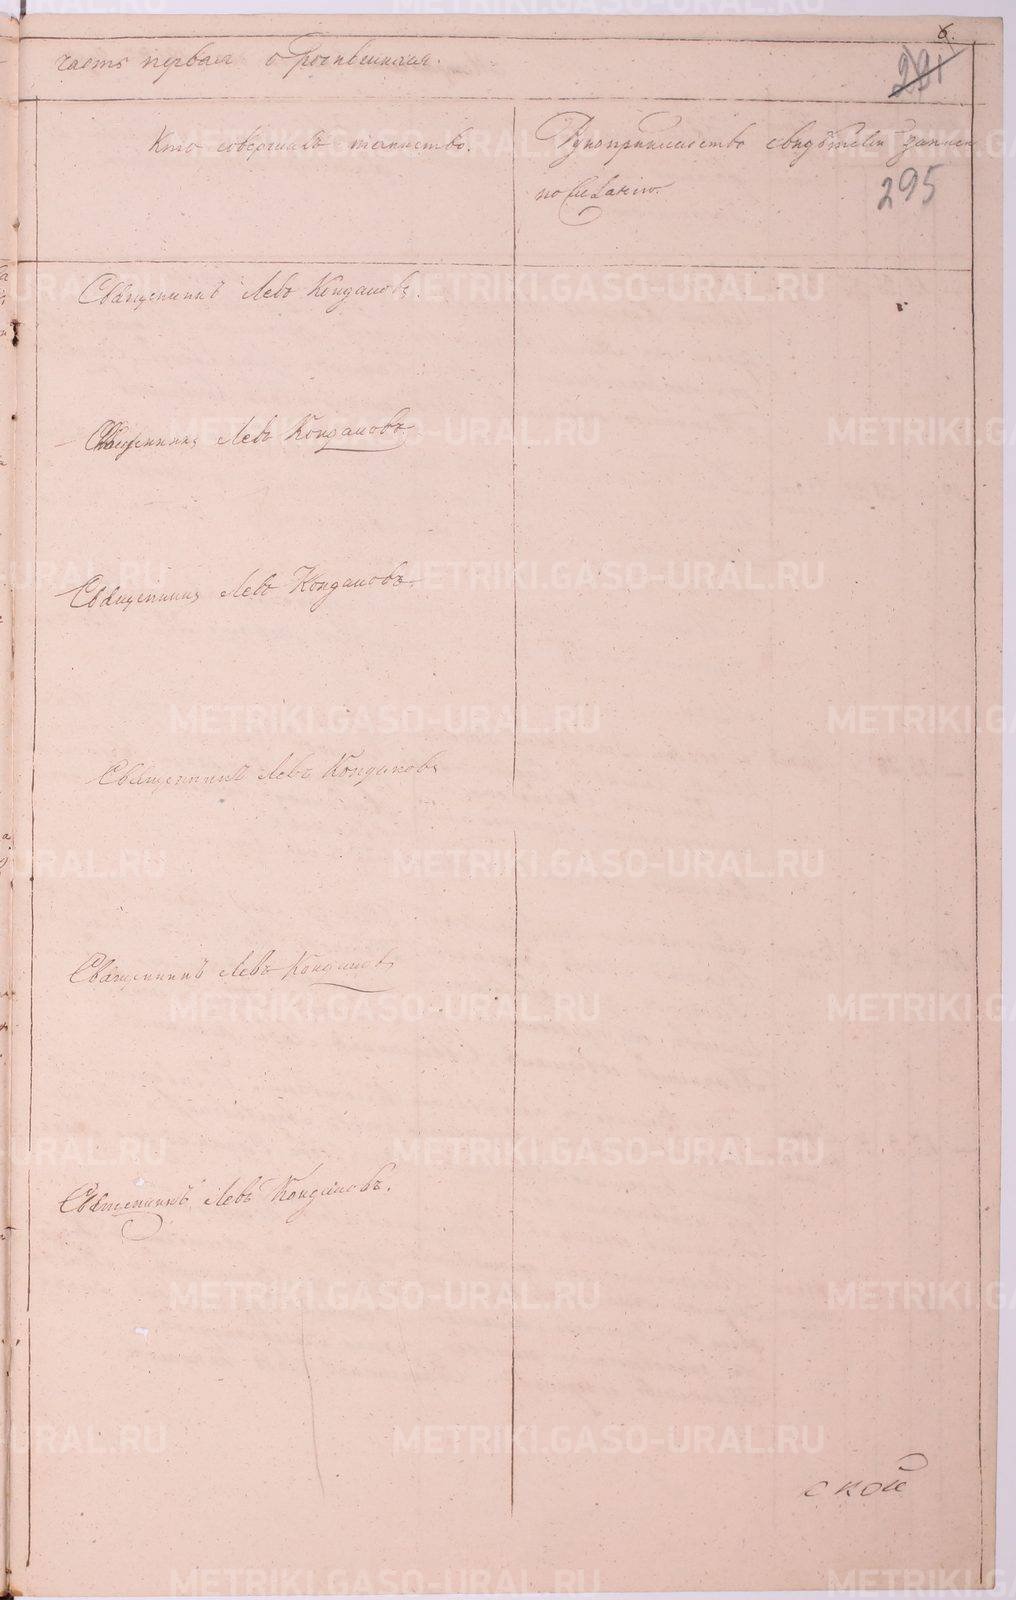 6.
часть первая о родившихся.
291
Кто совершалъ таинство.
Рукоприкладство свидѣтелей записи
по желанию.
295
Священникъ Левъ Кондаковъ.
Священникъ Левъ Кондаковъ.
Священникъ Левъ Кондаковъ.
Священникъ Левъ Кондаковъ
Священникъ Левъ Кондаковъ
Священникъ Левъ Кондаковъ.
ской
METRIKI.GASO-URAL.RU